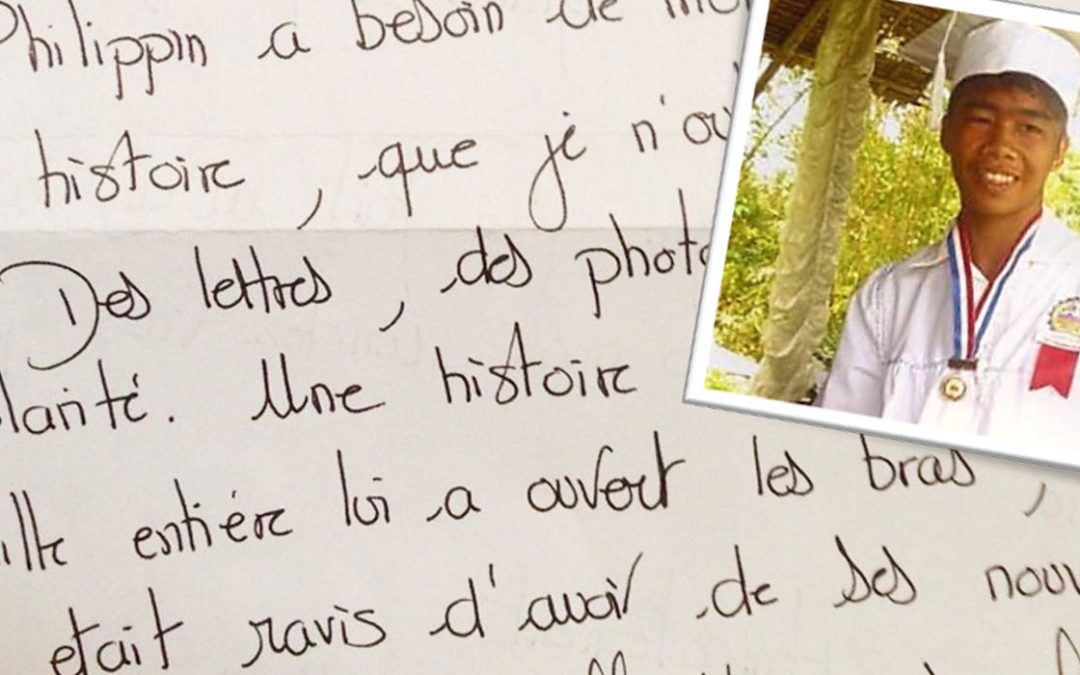 Philippin a besoin de
histoire, que je
Des lettres, des
Une histoire
entière lui a ouvert les bras,
etait ravis d'avoir de ses